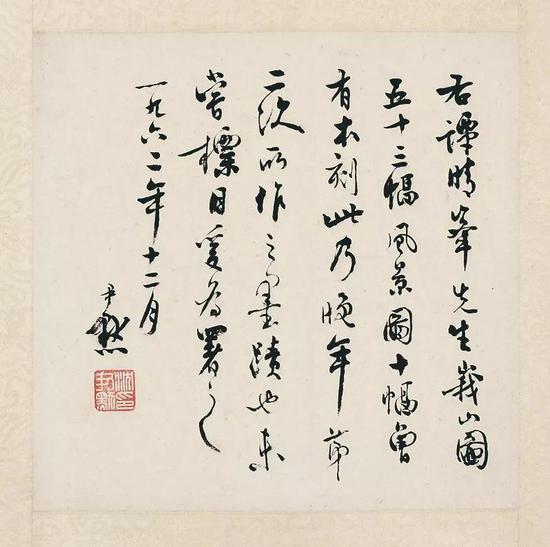 右谭晴峯先生峩山圖
五十三幅風景圖十幅曾
有木刻此乃晚年第
二次所作之墨蹟也未
嘗標目爰為署之
一九六二年十二月
尹默
沈尹默印